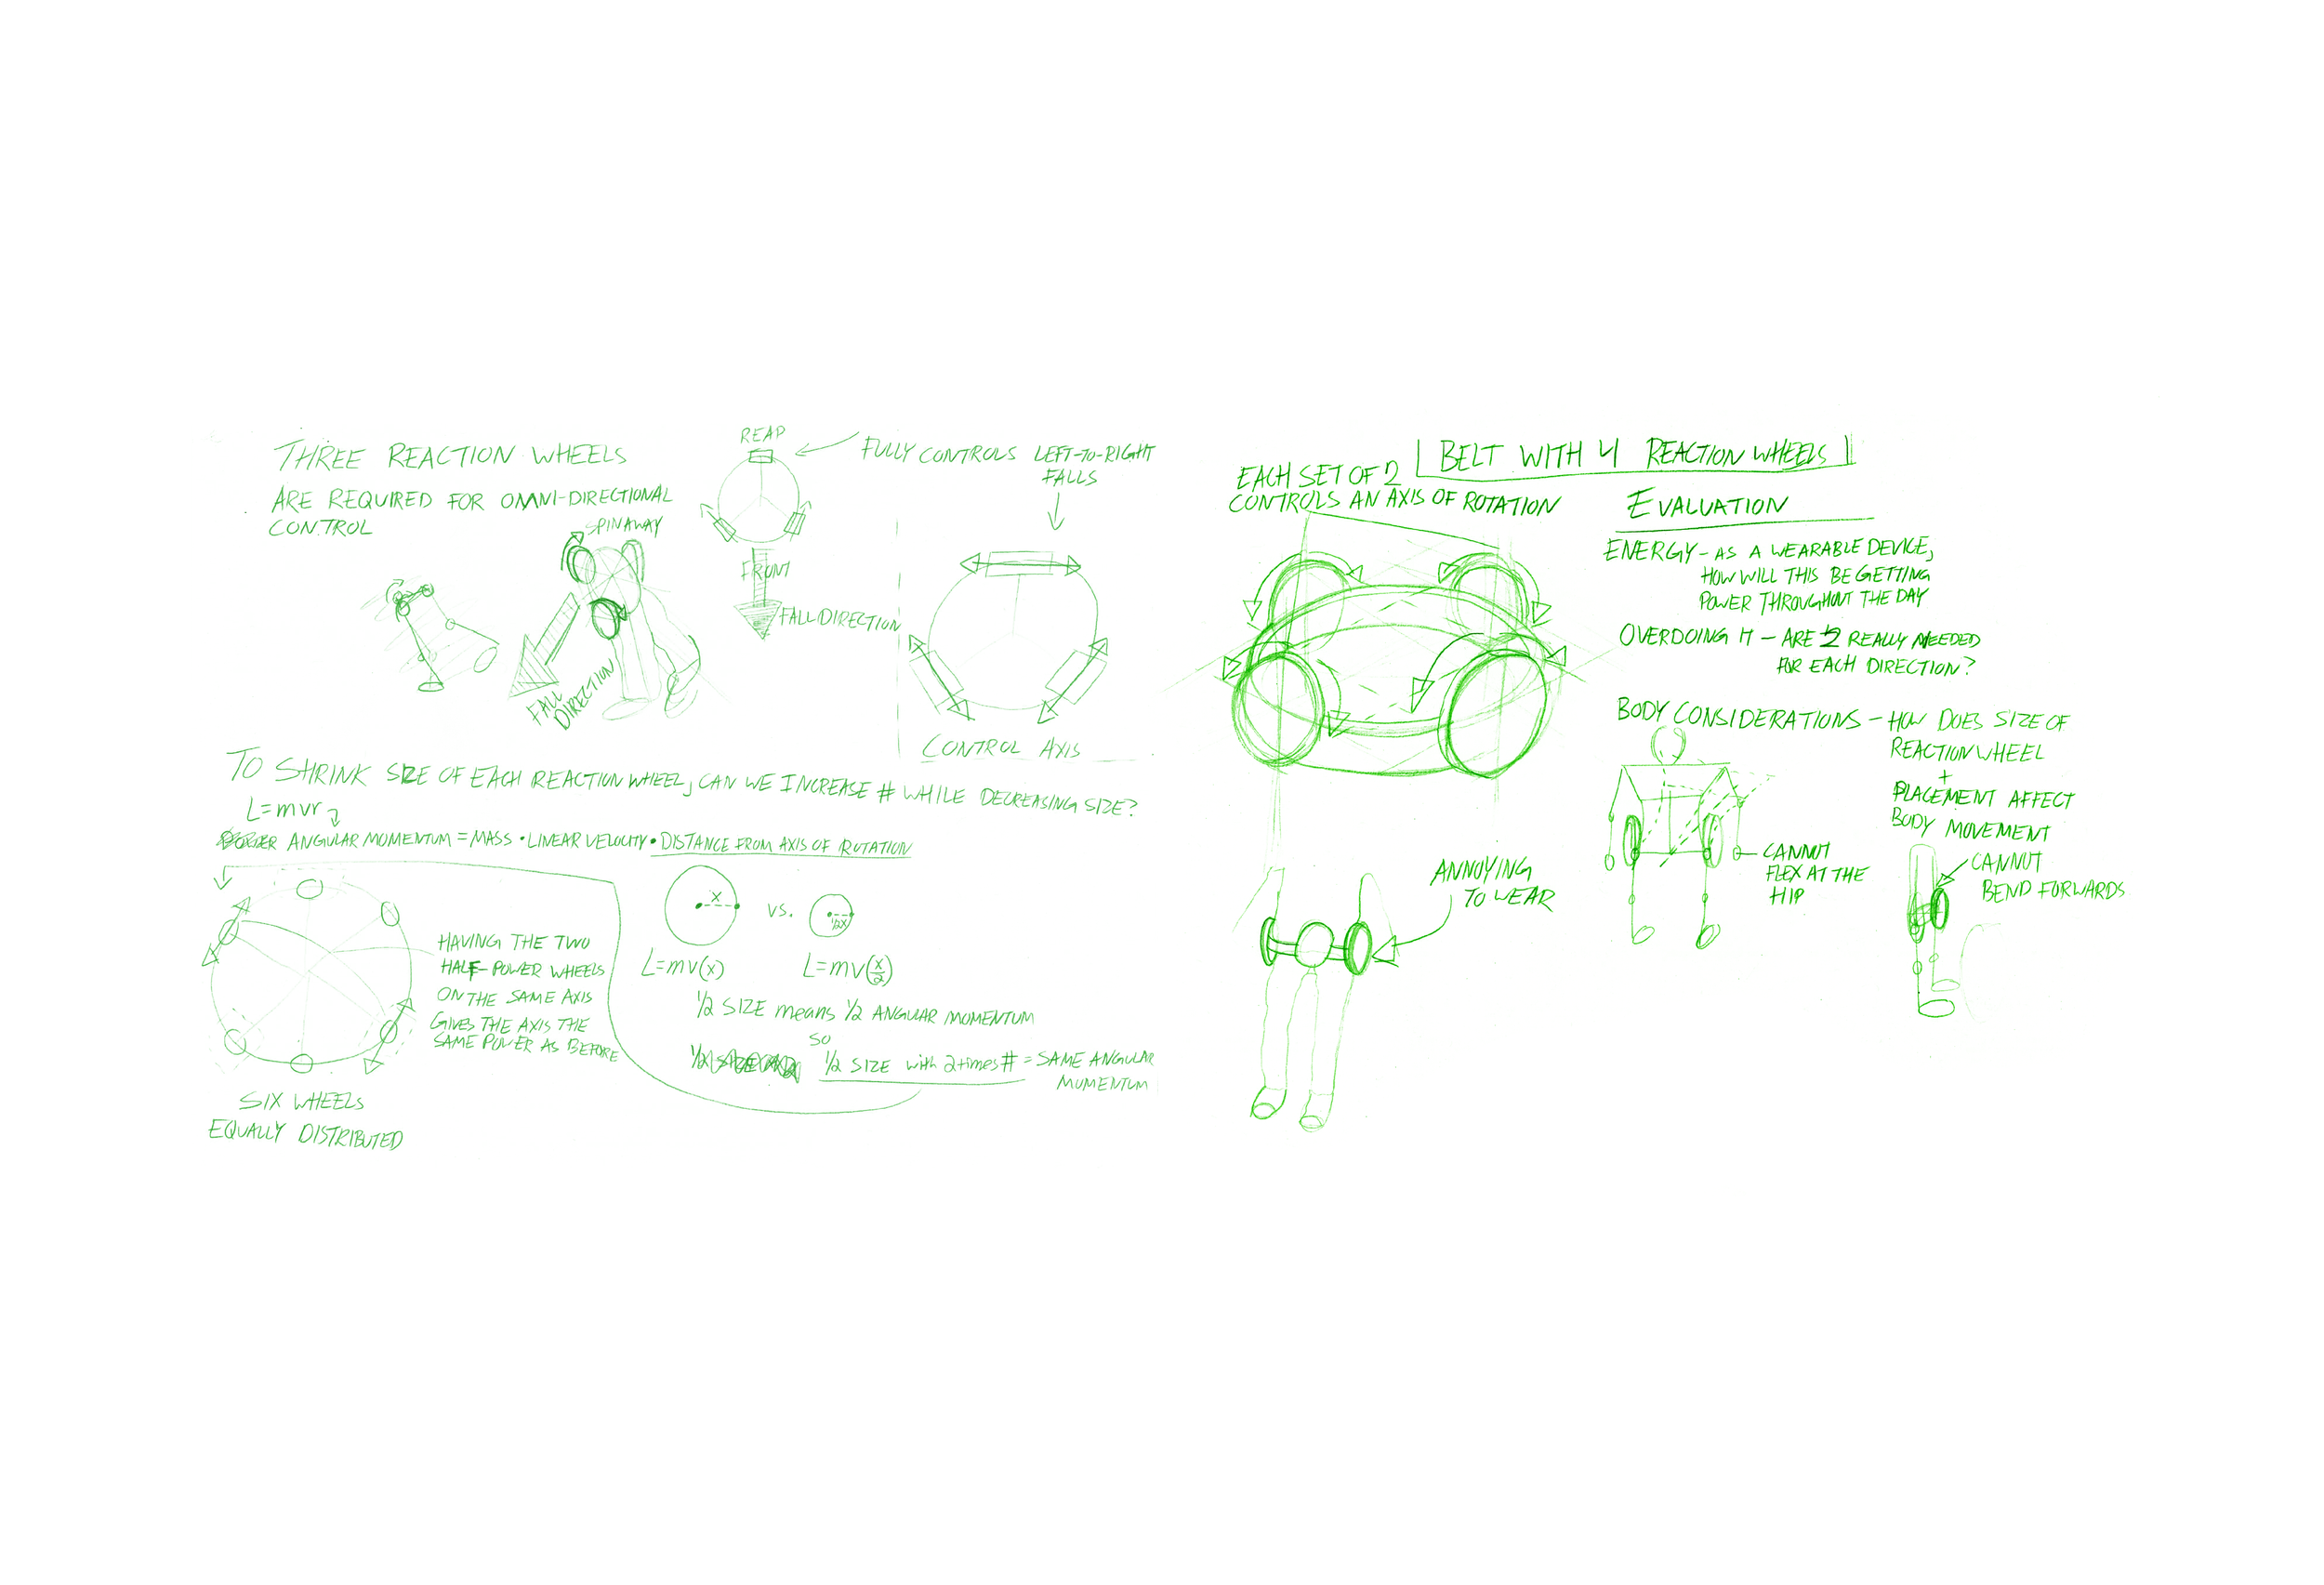 THREE REACTION WHEELS
ARE REQUIRED FOR OMNI-DIRECTIONAL
CONTROL
SPINAWAY
FALL
DIRECTION
REAR
FRONT
FALL DIRECTION
FULLY CONTROLS LEFT-TO-RIGHT
FALLS
CONTROL AXIS
TO SHRINK SIZE OF EACH REACTION WHEEL, CAN WE INCREASE # WHILE DECREASING SIZE?
L=mvr
ANGULAR MOMENTUM = MASS • LINEAR VELOCITY • DISTANCE FROM AXIS OF ROTATION
HAVING THE TWO
HALF-POWER WHEELS
ON THE SAME AXIS
GIVES THE AXIS THE
SAME POWER AS BEFORE
SIX WHEELS
EQUALLY DISTRIBUTED
X
VS.
1/2X
L=mv(x)
L=mv(x/2)
1/2 SIZE means 1/2 ANGULAR MOMENTUM
SO
1/2 SIZE with 2 times # = SAME ANGULAR
MOMENTUM
BELT WITH 4 REACTION WHEELS
EACH SET OF 2
CONTROLS AN AXIS OF ROTATION
ANNOYING
TO WEAR
EVALUATION
ENERGY - AS A WEARABLE DEVICE,
HOW WILL THIS BE GETTING
POWER THROUGHOUT THE DAY
OVERDOING IT - ARE 2 REALLY NEEDED
FOR EACH DIRECTION?
BODY CONSIDERATIONS - HOW DOES SIZE OF
REACTION WHEEL
+
PLACEMENT AFFECT
BODY MOVEMENT
CANNOT
FLEX AT THE
HIP
CANNOT
BEND FORWARDS